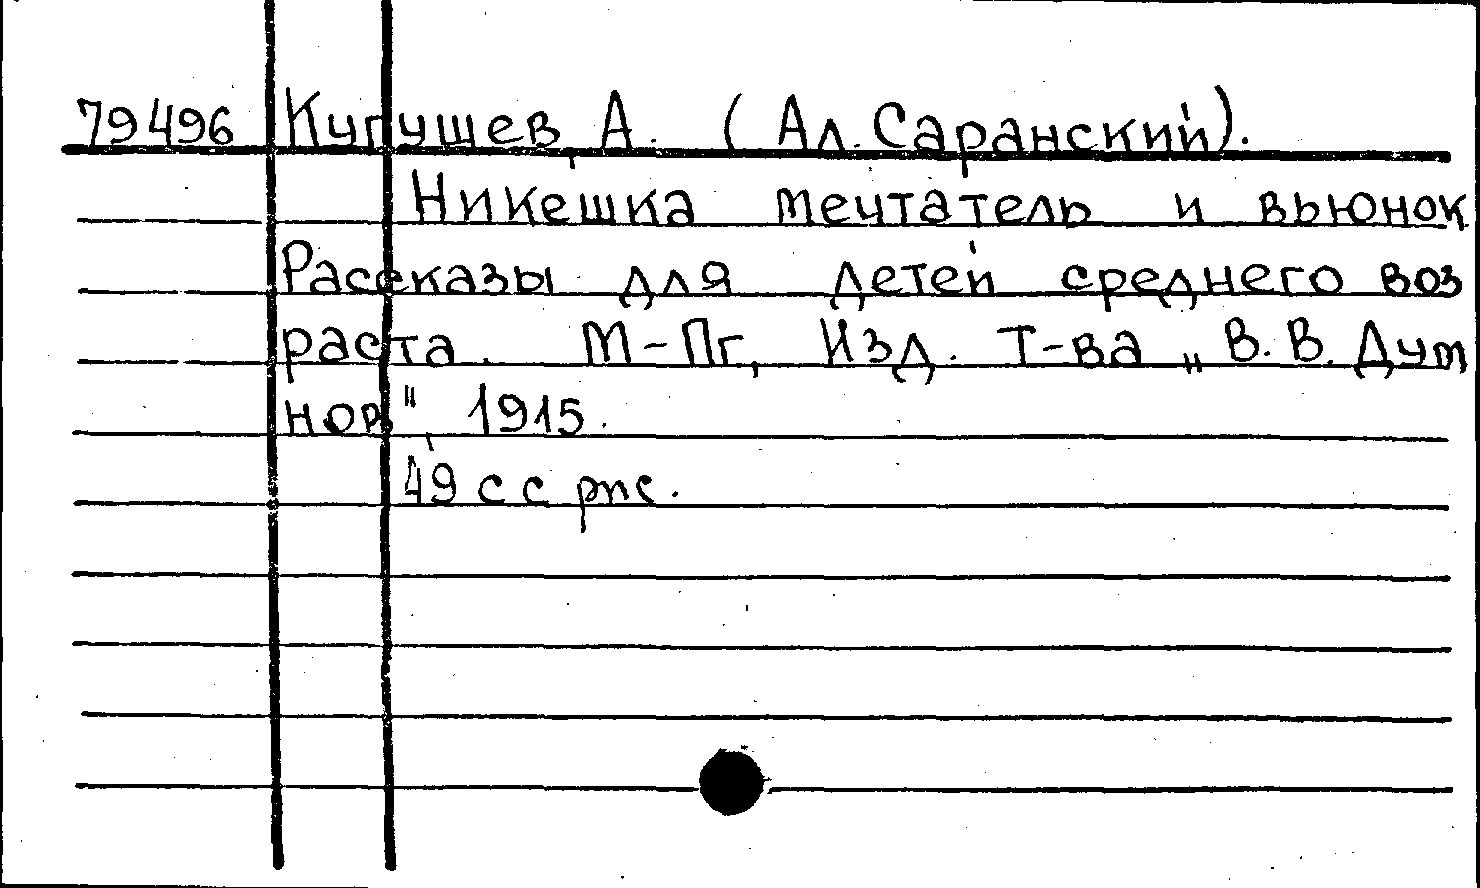 79496 Кугушев, А. (Ал. Саранский).
Никешка мечтатель и вьюнок
Рассказы для детей среднего воз
раста. М-Пг, Изд. Т-ва „В.В. Дум
нов", 1915.
49 с с рис.